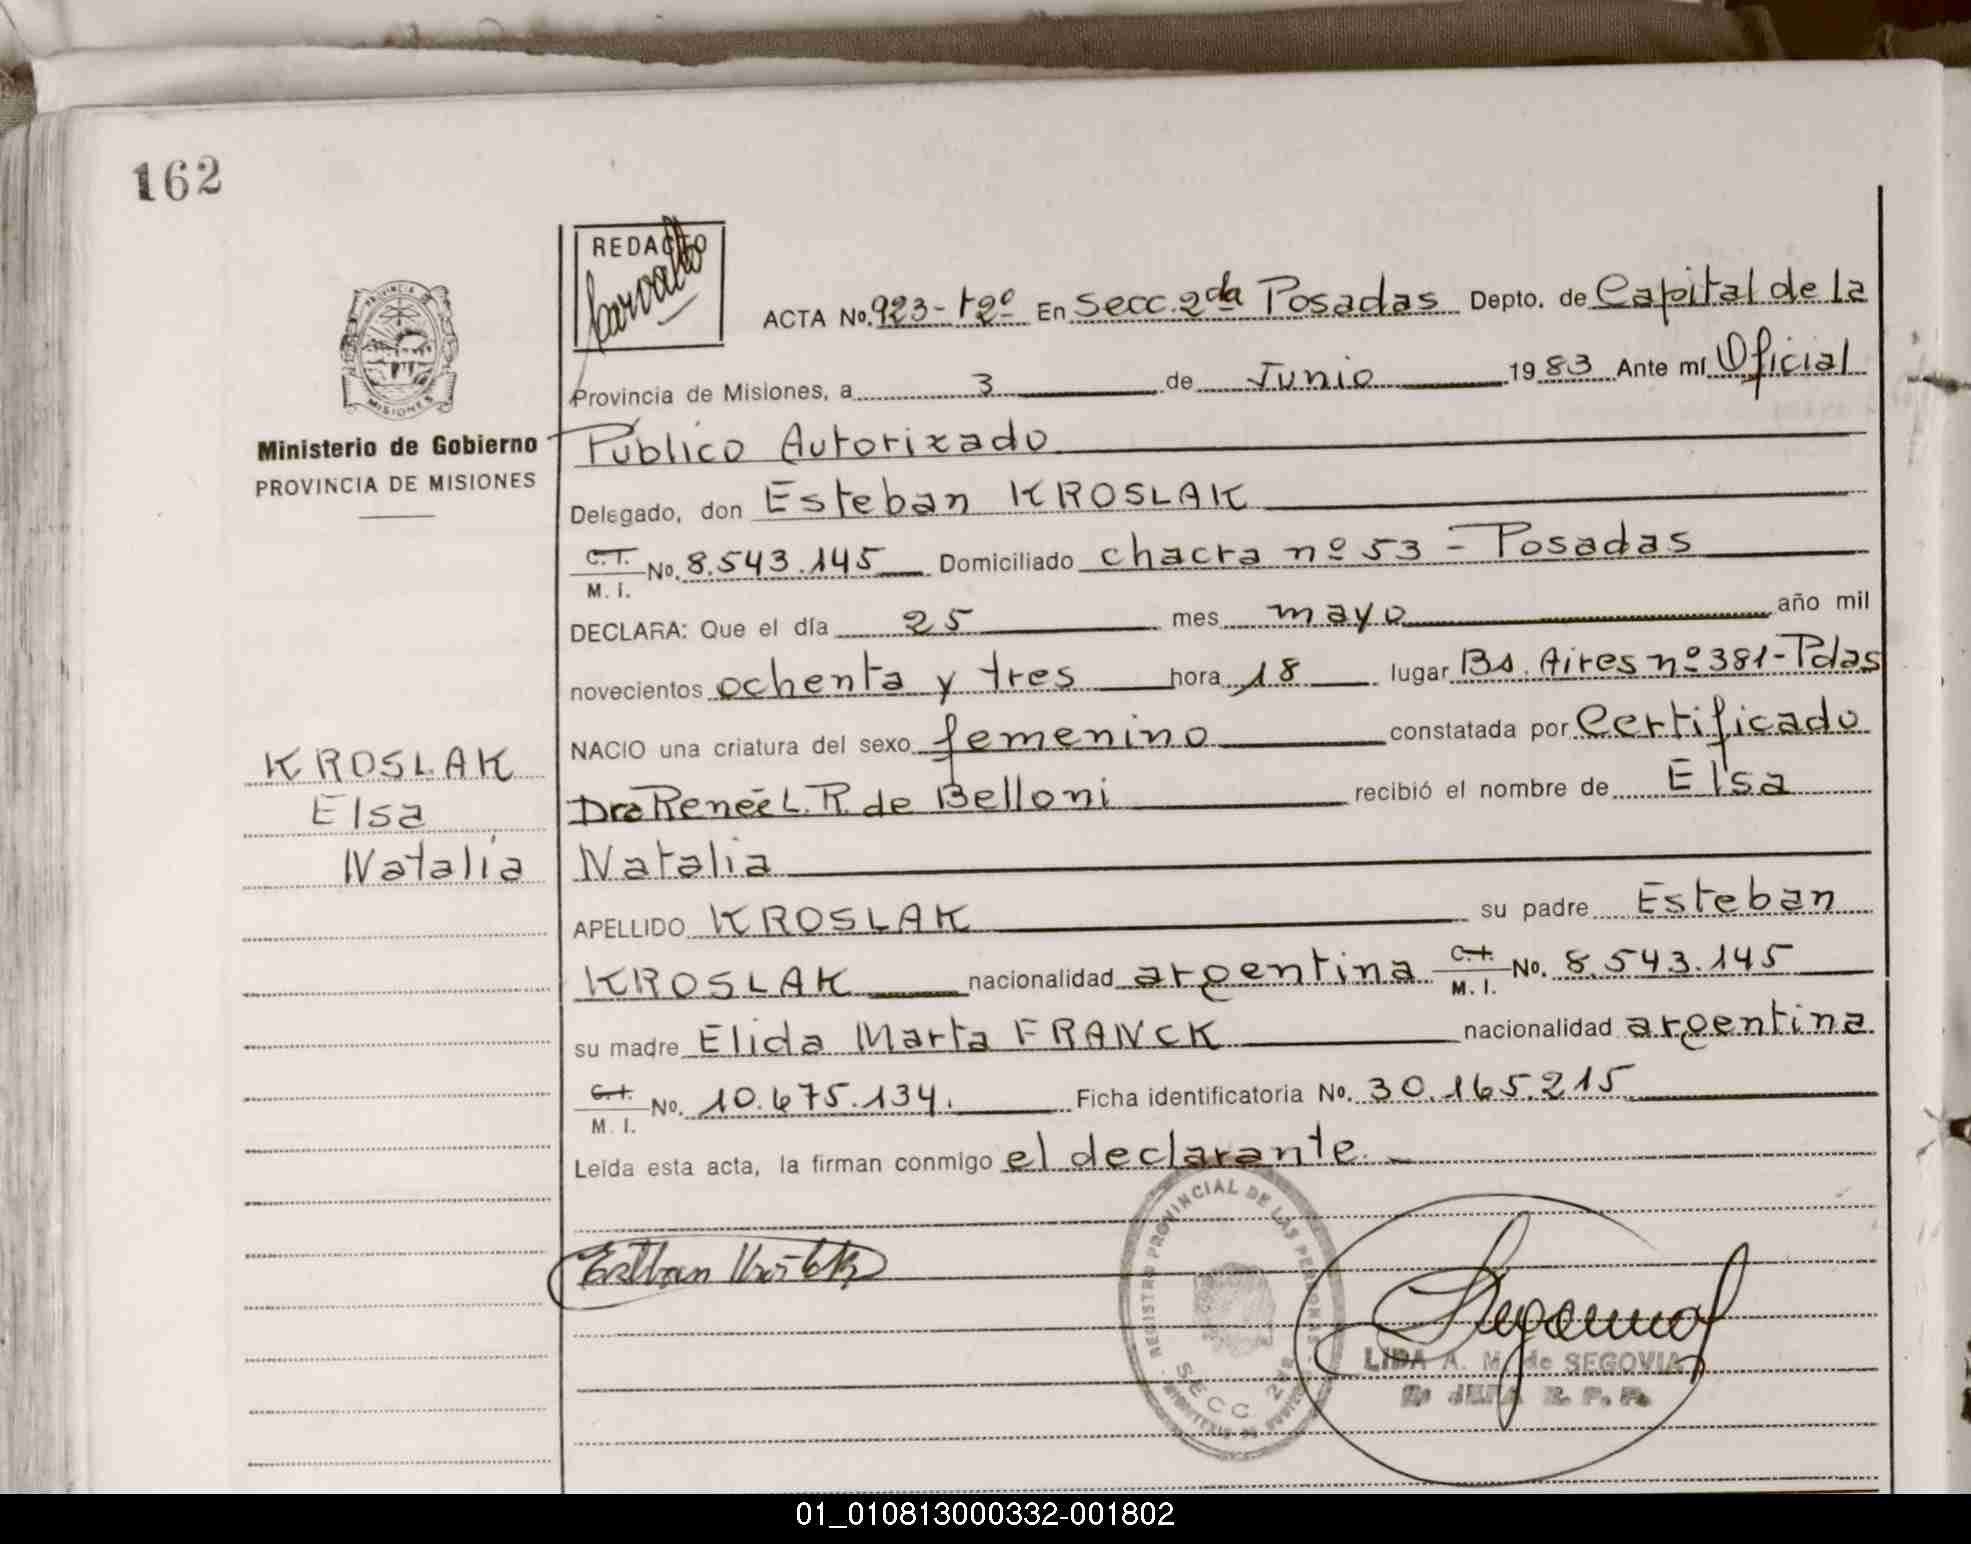 162
REDACTO
Carvallo
PROVINCIA DE
MISIONES
Ministerio de Gobierno
PROVINCIA DE MISIONES
ACTA No. 923-t2º En Secc. 2da Posadas Depto. de Capital de la
Provincia de Misiones, a 3 de Junio 1983 Ante mí Oficial
Público Autorizado
Delegado, don Esteban KROSLAK
C.I. M. I. No. 8.543.145 Domiciliado chacra nº 53 - Posadas
DECLARA: Que el día 25 mes mayo año mil
novecientos ochenta y tres hora 18 lugar Bs. Aires nº 381-Pdas
NACIO una criatura del sexo femenino constatada por Certificado
Dra Renée L. R. de Belloni recibió el nombre de Elsa
Natalia
APELLIDO KROSLAK su padre Esteban
KROSLAK nacionalidad argentina C.I. M. I. No. 8.543.145
su madre Elida Marta FRANCK nacionalidad argentina
C.I. M. I. No. 10.675.134. Ficha identificatoria No. 30.165.215
Leída esta acta, la firman conmigo el declarante.
KROSLAK
Elsa
Natalia
REGISTRO PROVINCIAL DE LAS PERSONAS
SECC. 2da
LIDA A. M. de SEGOVIA
JEFA R. P. P.
01_010813000332-001802